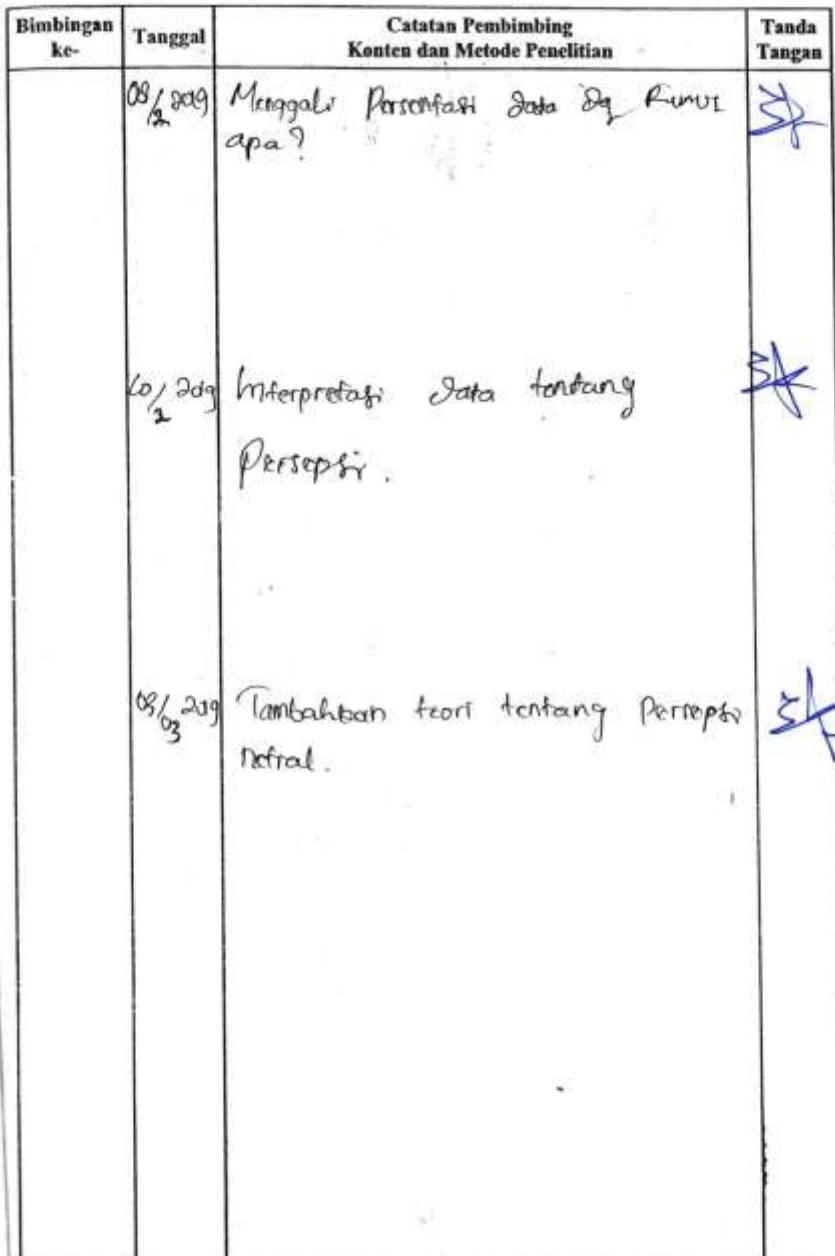 Bimbingan ke-
Tanggal
Catatan Pembimbing
Konten dan Metode Penelitian
Tanda Tangan
08/2 2019 Menggali Persentasi data dg Rumus
apa?
10/2 2019 Interpretasi data tentang
Persepsi.
03 2019 Tambahkan teori tentang persepsi
netral.